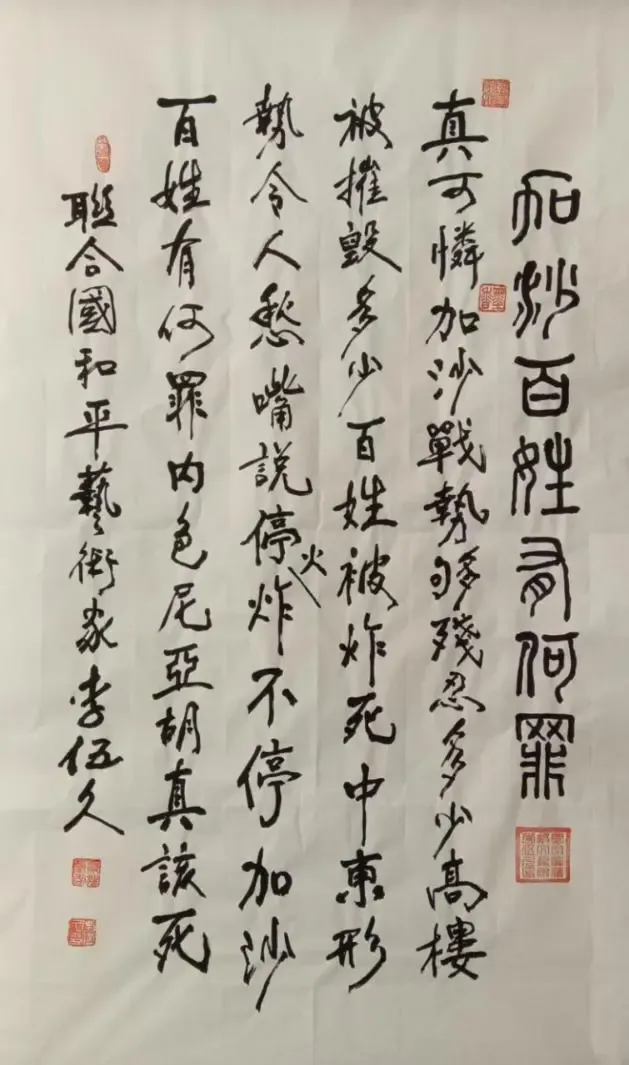 加沙百姓有何罪
真可憐加沙戰勢够殘忍多少高樓
被摧毀多少百姓被炸死中東形
勢令人愁嘴説停火炸不停加沙
百姓有何罪内色尼亞胡真該死
聯合國和平藝術家李伍久